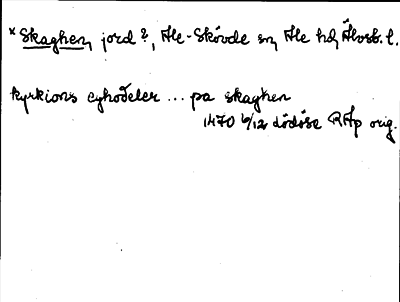 * Skaghen, jord?, Ale-Skövde sn, Ale hd, Älvsb. l.
kyrkions eyhodeler ... pa skaghen
1470 6/12 Lödöse RAp orig.